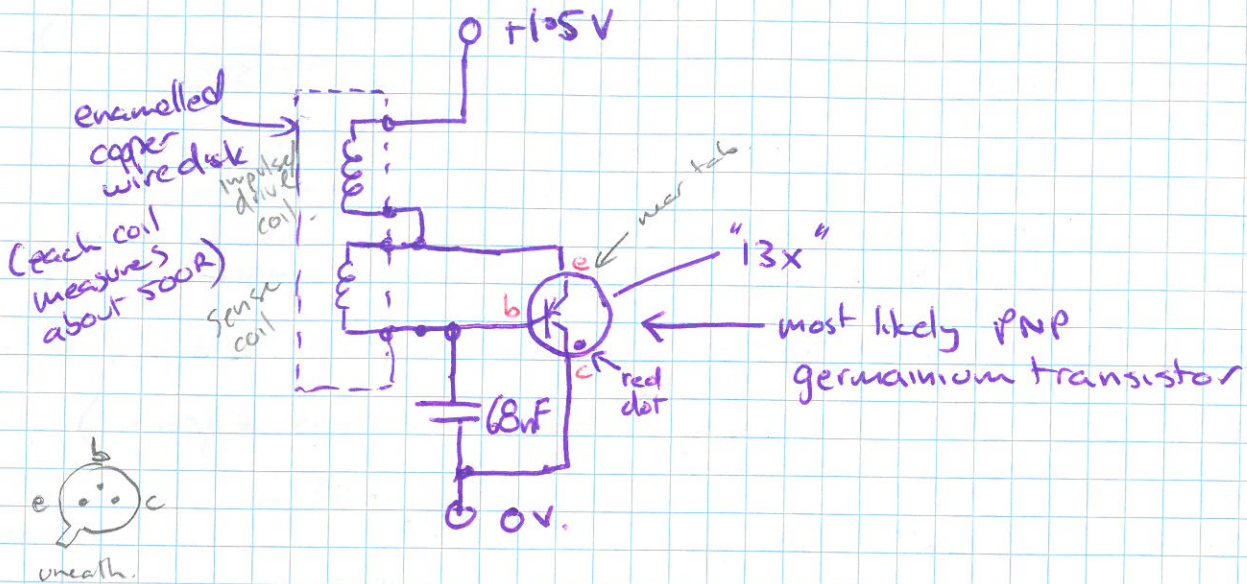 +1·5 V
enamelled
copper
wire disk
impulse
drive
coil.
(each coil
measures
about 500R)
sense
coil
near tab.
e
b
c
"13x"
most likely PNP
germainium transistor
red
dot
68nF
0V.
b
e
c
uneath.